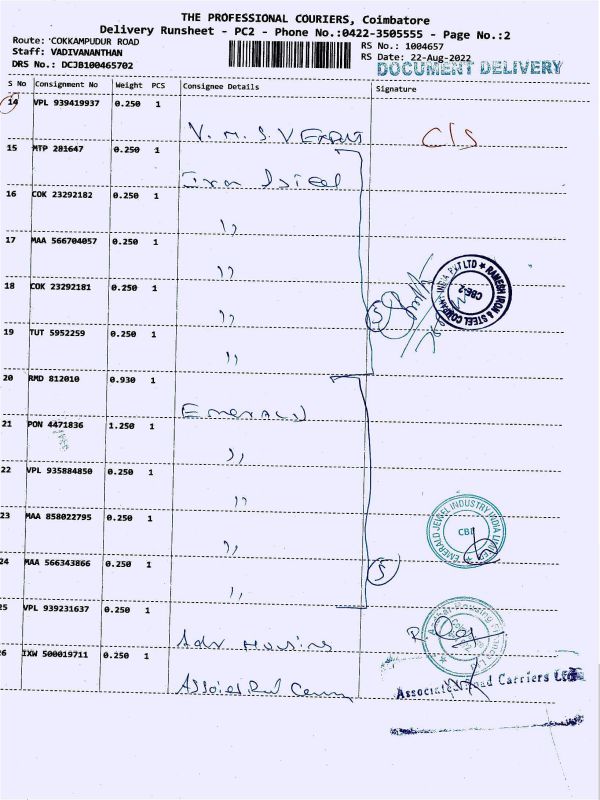 THE PROFESSIONAL COURIERS, Coimbatore
Delivery Runsheet - PC2 - Phone No.:0422-3505555 - Page No.:2
Route: COKKAMPUDUR ROAD
RS No.: 1004657
Staff: VADIVANANTHAN
RS Date: 22-Aug-2022
DRS No.: DCJB100465702
DOCUMENT DELIVERY
S No Consignment No Weight PCS Consignee Details Signature
14 VPL 939419937 0.250 1
V. M. S. V
C/s
15 MTP 281647 0.250 1
Iron Steel
16 COK 23292182 0.250 1
,,
17 MAA 566704057 0.250 1
,,
18 COK 23292181 0.250 1
,,
5
RAMESH IRON & STEEL COMPANY INDIA PVT LTD
CBE-2
19 TUT 5952259 0.250 1
,,
20 RMD 812010 0.930 1
Emerald
21 PON 4471836 1.250 1
,,
22 VPL 935884850 0.250 1
,,
23 MAA 858022795 0.250 1
,,
EMERALD JEWEL INDUSTRY INDIA LIMITED
CBE
24 MAA 566343866 0.250 1
,,
5
25 VPL 939231637 0.250 1
Housing
26 IXW 500019711 0.250 1
Associated Road Carriers Ltd